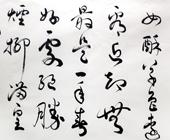 如酥草色遥
看近却無
最是一年春
好處絕勝
煙柳滿皇